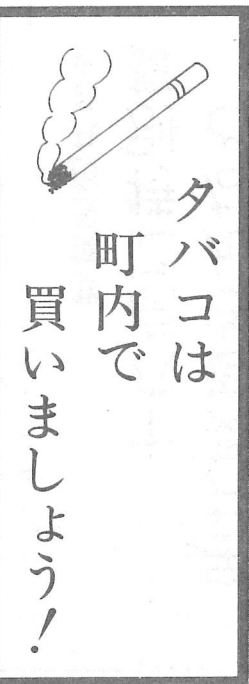 タバコは
町内で
買いましょう!